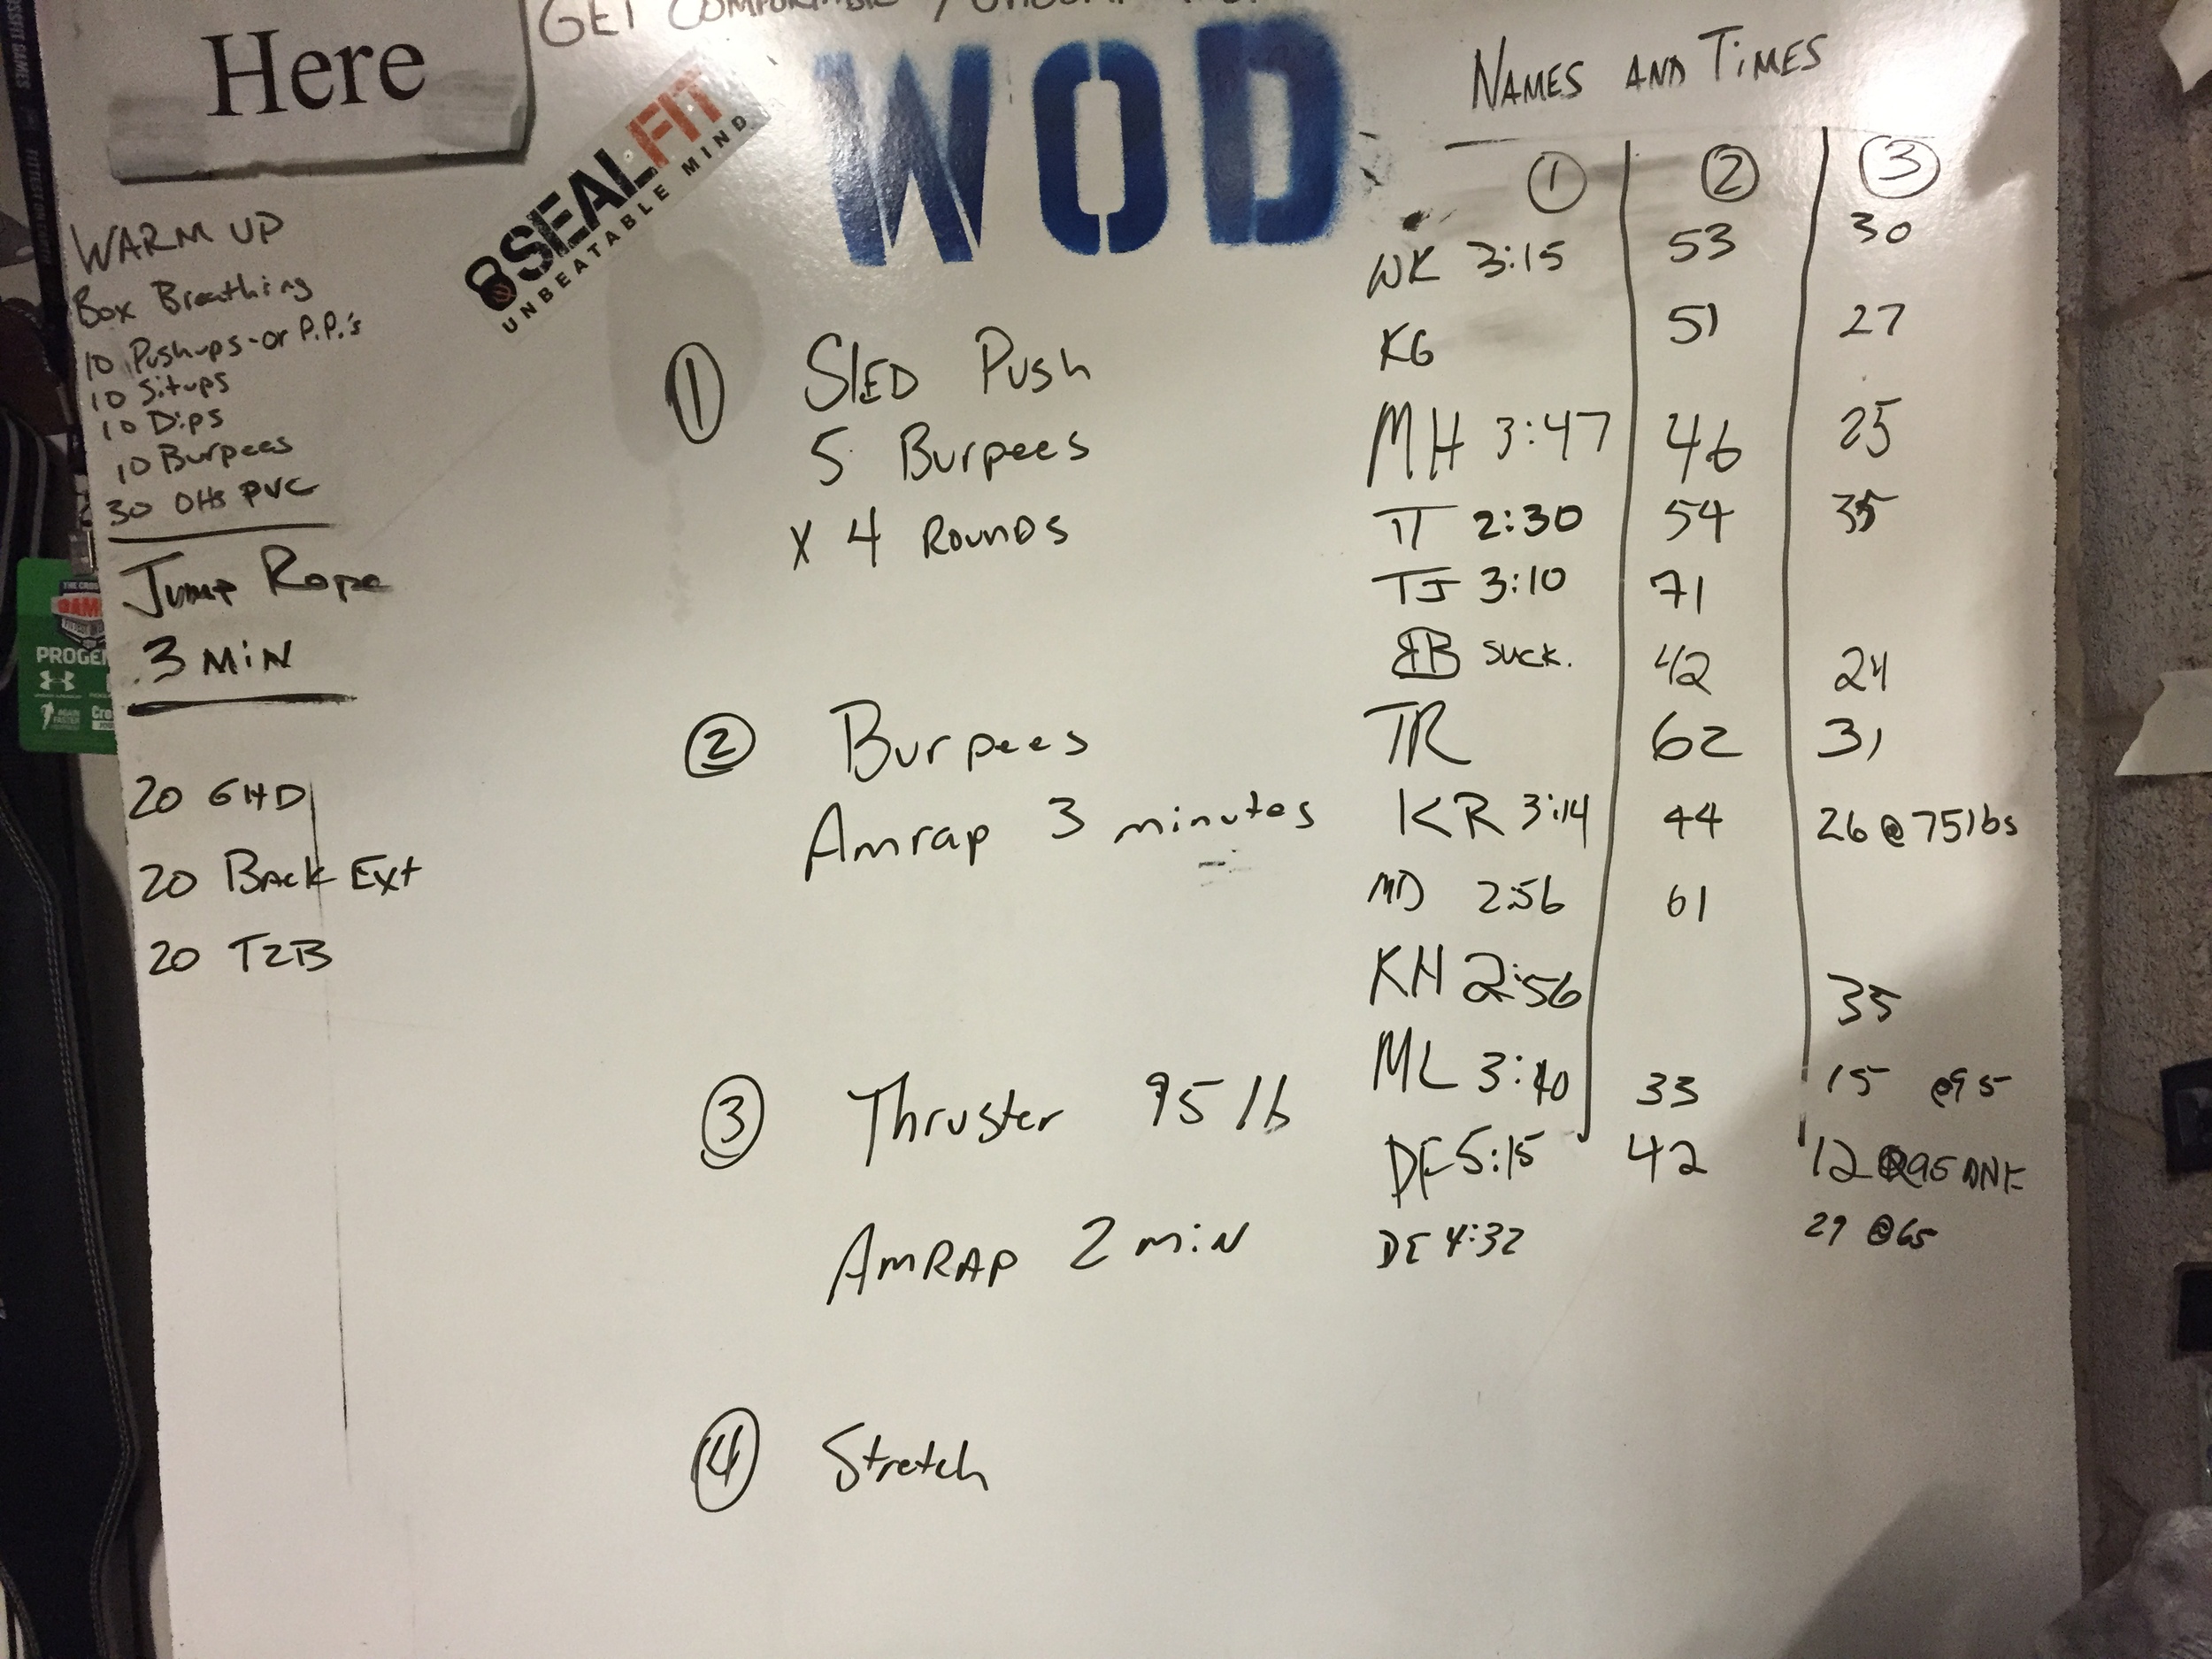 Here
GET COMFORTABLE
WOD
8 SEALFIT
UNBEATABLE MIND
WARM UP
Box Breathing
10 Pushups-or P.P.'s
10 Situps
10 Dips
10 Burpees
30 OHS PVC
Jump Rope
3 MIN
20 GHD
20 BACK Ext
20 T2B
① SLED Push
5 Burpees
x 4 ROUNDS
② Burpees
Amrap 3 minutes
③ Thruster 95 lb
AMRAP 2 MIN
④ Stretch
NAMES AND TIMES
① ② ③
WK 3:15 53 30
KG 51 27
MH 3:47 46 25
TT 2:30 54 35
TJ 3:10 71
BB SUCK. 42 24
TR 62 31
KR 3:14 44 26 @ 75lbs
MD 2:56 61
KH 2:56 35
ML 3:40 33 15 @95
DF 5:15 42 12 @95 DNF
DE 4:32 29 @65
PROGEN